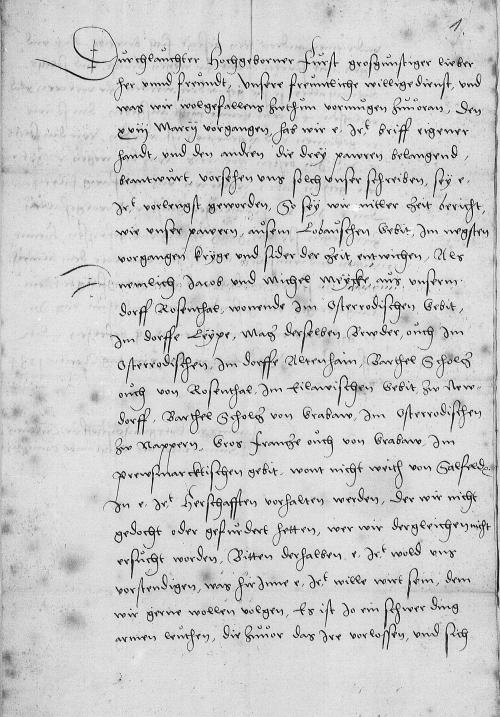 1.
Durchlauchter Hochgeborner Furst großgunstiger lieber
her vnnd freundt, Vnsere freuntliche willige dienst, vnd
was wir wolgefallens zuthun vormugen zuuoran, Den
xxviij Marcij vorgangen, hab wir e. Jrt. briff eigener
handt, vnd den andren die drey pawren belangend,
beantwurt, vorsehen vns solch vnser schreiben, sey e.
Jrt. vorlengst geworden, So sey wir mitler Zeit bericht,
wie vnser pawern, auſem Lobauischen Gebit, Im negsten
vorgangen kryge vnd sider der Zeit, entwichen, Als
nemlich Jacob vnd Michel aus vnserm
dorff Rosenthal, wonende Im Osterrodischen Gebit,
Im dorffe Leype, Matz derselben Bruder, ouch Im
Osterrodischen, Im dorffe Altenhain, Barthel Scholtz
ouch von Rosenthal, Im Eilawischen Gebit, zw New-
dorff, Barthel Scholtz von Grabaw, Im Osterrodischen
zw Nappern, Gros Frantze ouch von Grabaw, Im
prewsmarcktischen gebit, wont nicht weith von Salfeld
In e. Jrt. Herschafften vorhalten werden, der wir nicht
gedocht oder gefurdert hetten, wer wir dergleichen nicht
ersucht worden, Bitten derhalben e. Jrt. wold vns
vorstendigen, was hir Inne e. Jrt. wille wirt sein, dem
wir gerne wollen volgen, Es ist Jo ein schwer ding
armen leuthen, die zuuor das Jre vorlossen, vnd sich